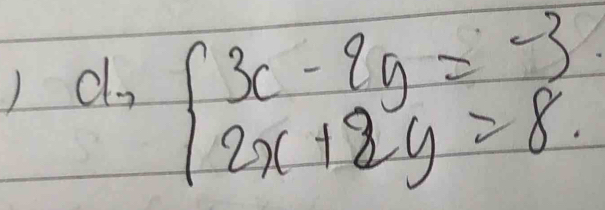 ) d, { 3c - 2y = -3.
2x + 2y = 8.